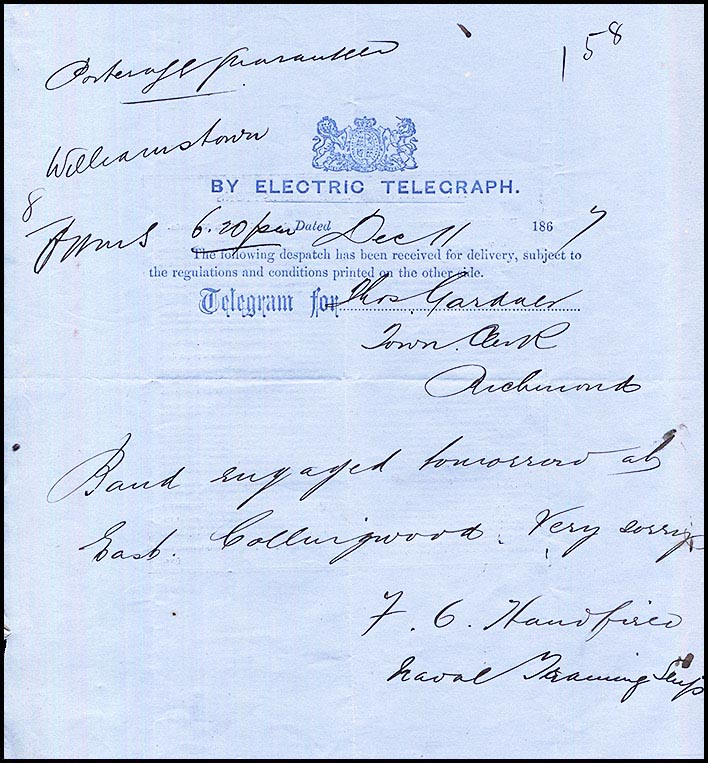 158
Porterage guaranteed
Williamstown
BY ELECTRIC TELEGRAPH.
8
6.20 pm Dated Dec 11 1867
The following despatch has been received for delivery, subject to
the regulations and conditions printed on the other side.
Telegram for Thos Gardner
Town Clerk
Richmond
Band engaged tomorrow at
East Collingwood. Very sorry
F. C. Handfield
Naval Training Ship